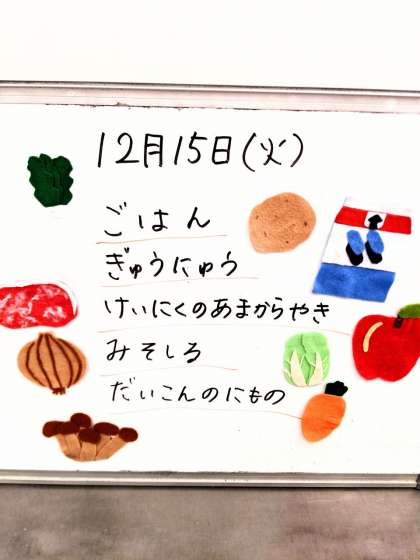 12月15日(火)
ごはん
ぎゅうにゅう
けいにくのあまからやき
みそしる
だいこんのにもの